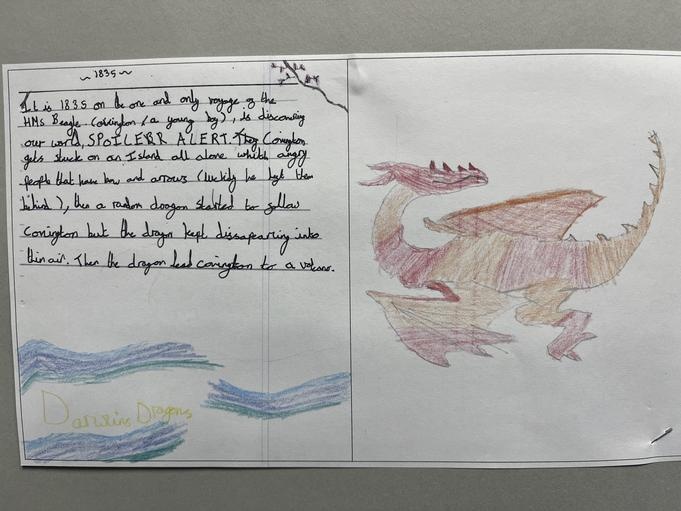 ~ 1835 ~
It is 1835 on the one and only voyage of the
HMS Beagle. Covington (a young boy), is discovering
our world, SPOILER ALERT. Covington
gets stuck on an Island all alone whith angry
people that have bow and arrows (luckily he left them
behind), then a random dragon started to follow
Covington but the dragon kept dissapearing into
thin air. Then the dragon lead Covington to a volcano.
Darwins Dragons